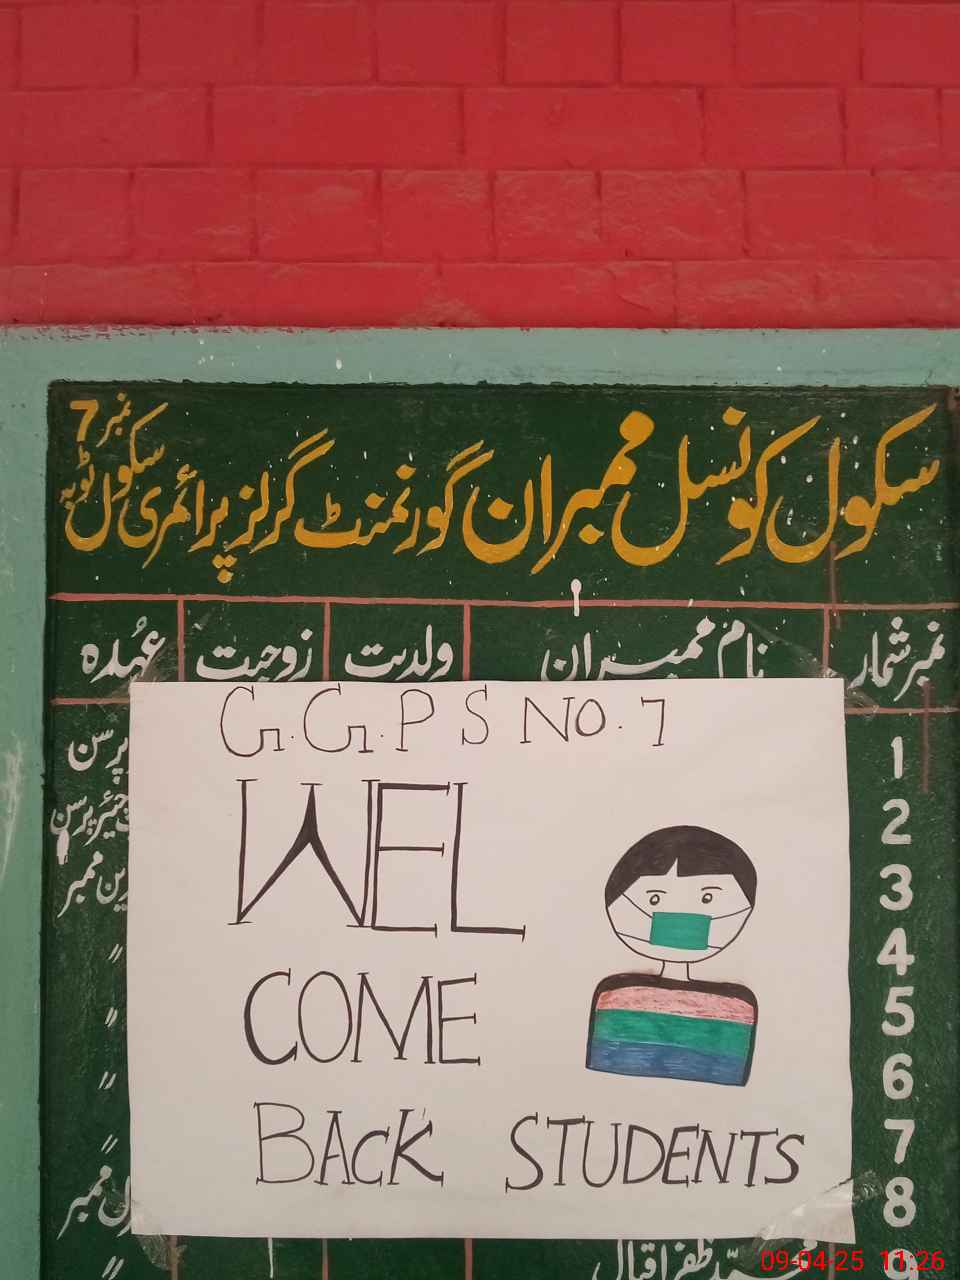 سکول کونسل ممبران گورنمنٹ گرلز پرائمری سکول نمبر 7 ٹوبہ
نمبر شمار نام ممبران ولدیت زوجیت عہدہ
G.G.P S NO. 7
WEL
COME
BACK STUDENTS
1
2
3
ممبر
4 〃
5 〃
6 〃
7 〃
8
ممبر
ظفر اقبال
〃
09-04-25 11:26